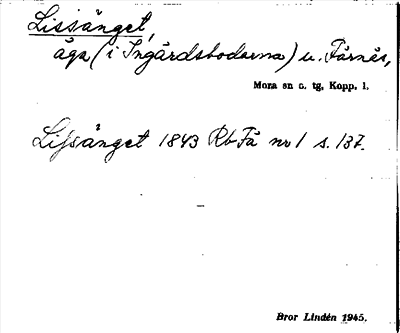 Lissänget,
äga (i Ingårdsbodarna) u. Färnäs,
Mora sn o. tg, Kopp. l.
Lissänget 1843 Rb Få nr 1 s. 137.
Bror Lindén 1945.